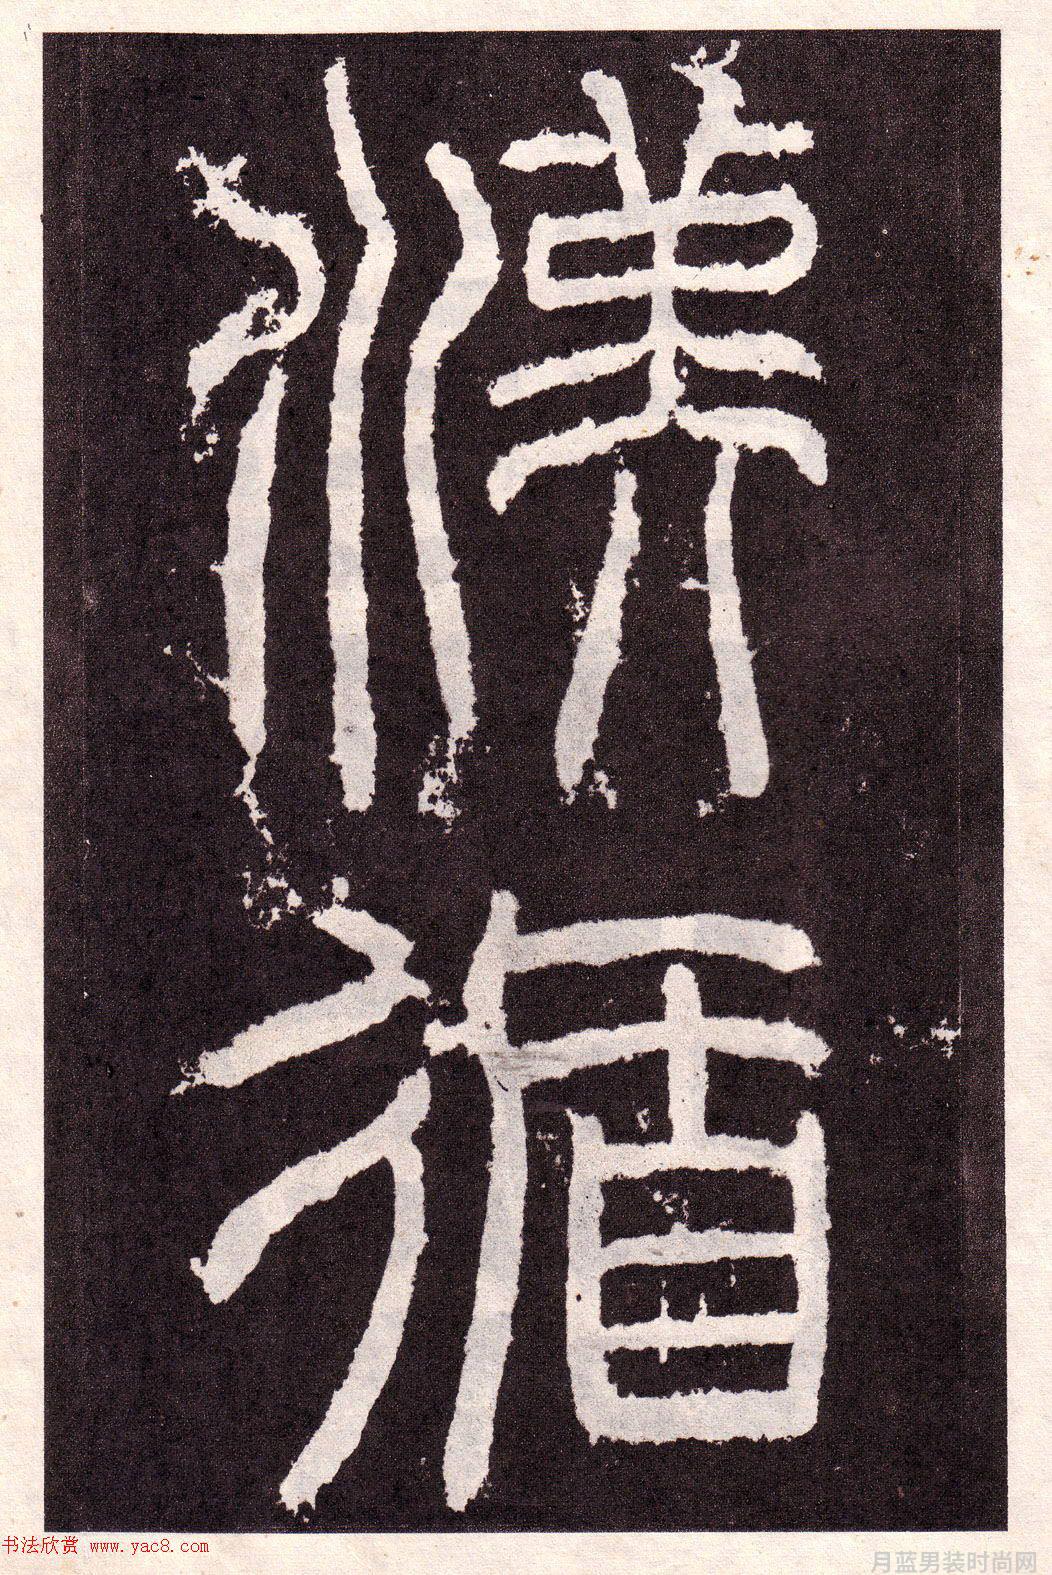 漢
循
书法欣赏 www.yac8.com
月蓝男装时尚网